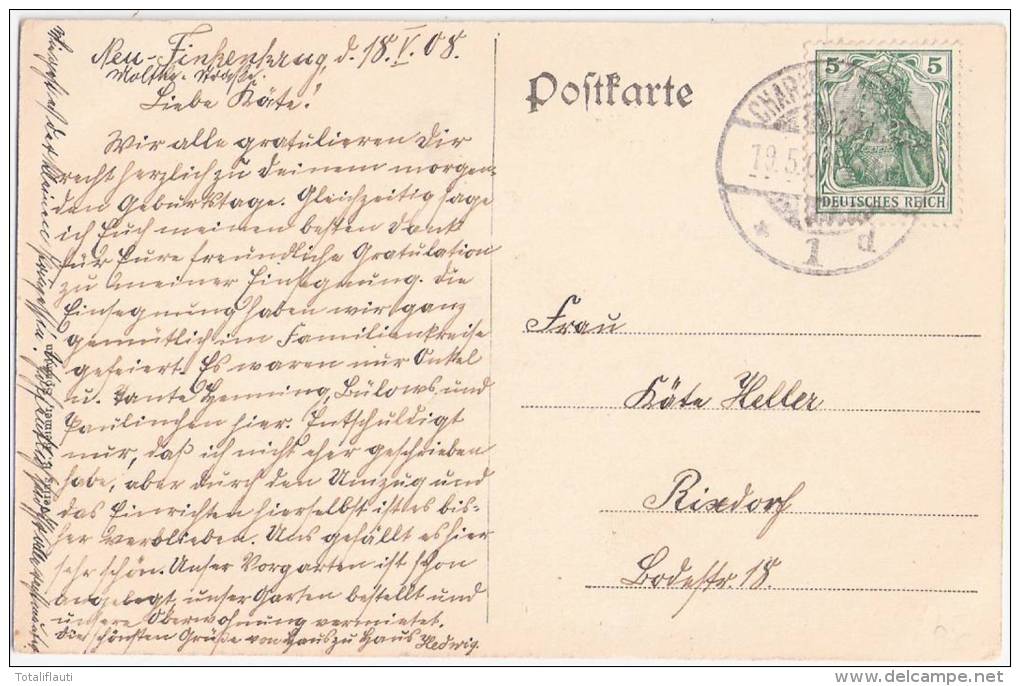 Neu-Finkenkrug, d. 18. V. 08.
Moltke-Straße.
Liebe Käte!
Wir alle gratulieren Dir
recht herzlich zu Deinem morgen-
den Geburtstage. Gleichzeitig sage
ich Euch meinen besten Dank
für Eure freundliche Gratulation
zu meiner Einsegnung. Die
Einsegnung haben wir ganz
gemütlich im Familienkreise
gefeiert. Es waren nur Onkel
u. Tante Henning, Bülows und
Paulinchen hier. Entschuldigt
nur, daß ich nicht eher geschrieben
habe, aber durch den Umzug und
das Einrichten hierselbst ist es bis-
her verblieben. Uns gefällt es hier
sehr schön. Unser Vorgarten ist schon
angelegt, unser Garten bestellt und
unsere Oberwohnung vermietet.
Die schönsten Grüße von Haus zu Haus Hedwig.
Postkarte
CHAR
19.5.
* 1 d
5 5
DEUTSCHES REICH
Frau
Käte Heller
Rixdorf
Bodestr. 18.
Totaliflauti